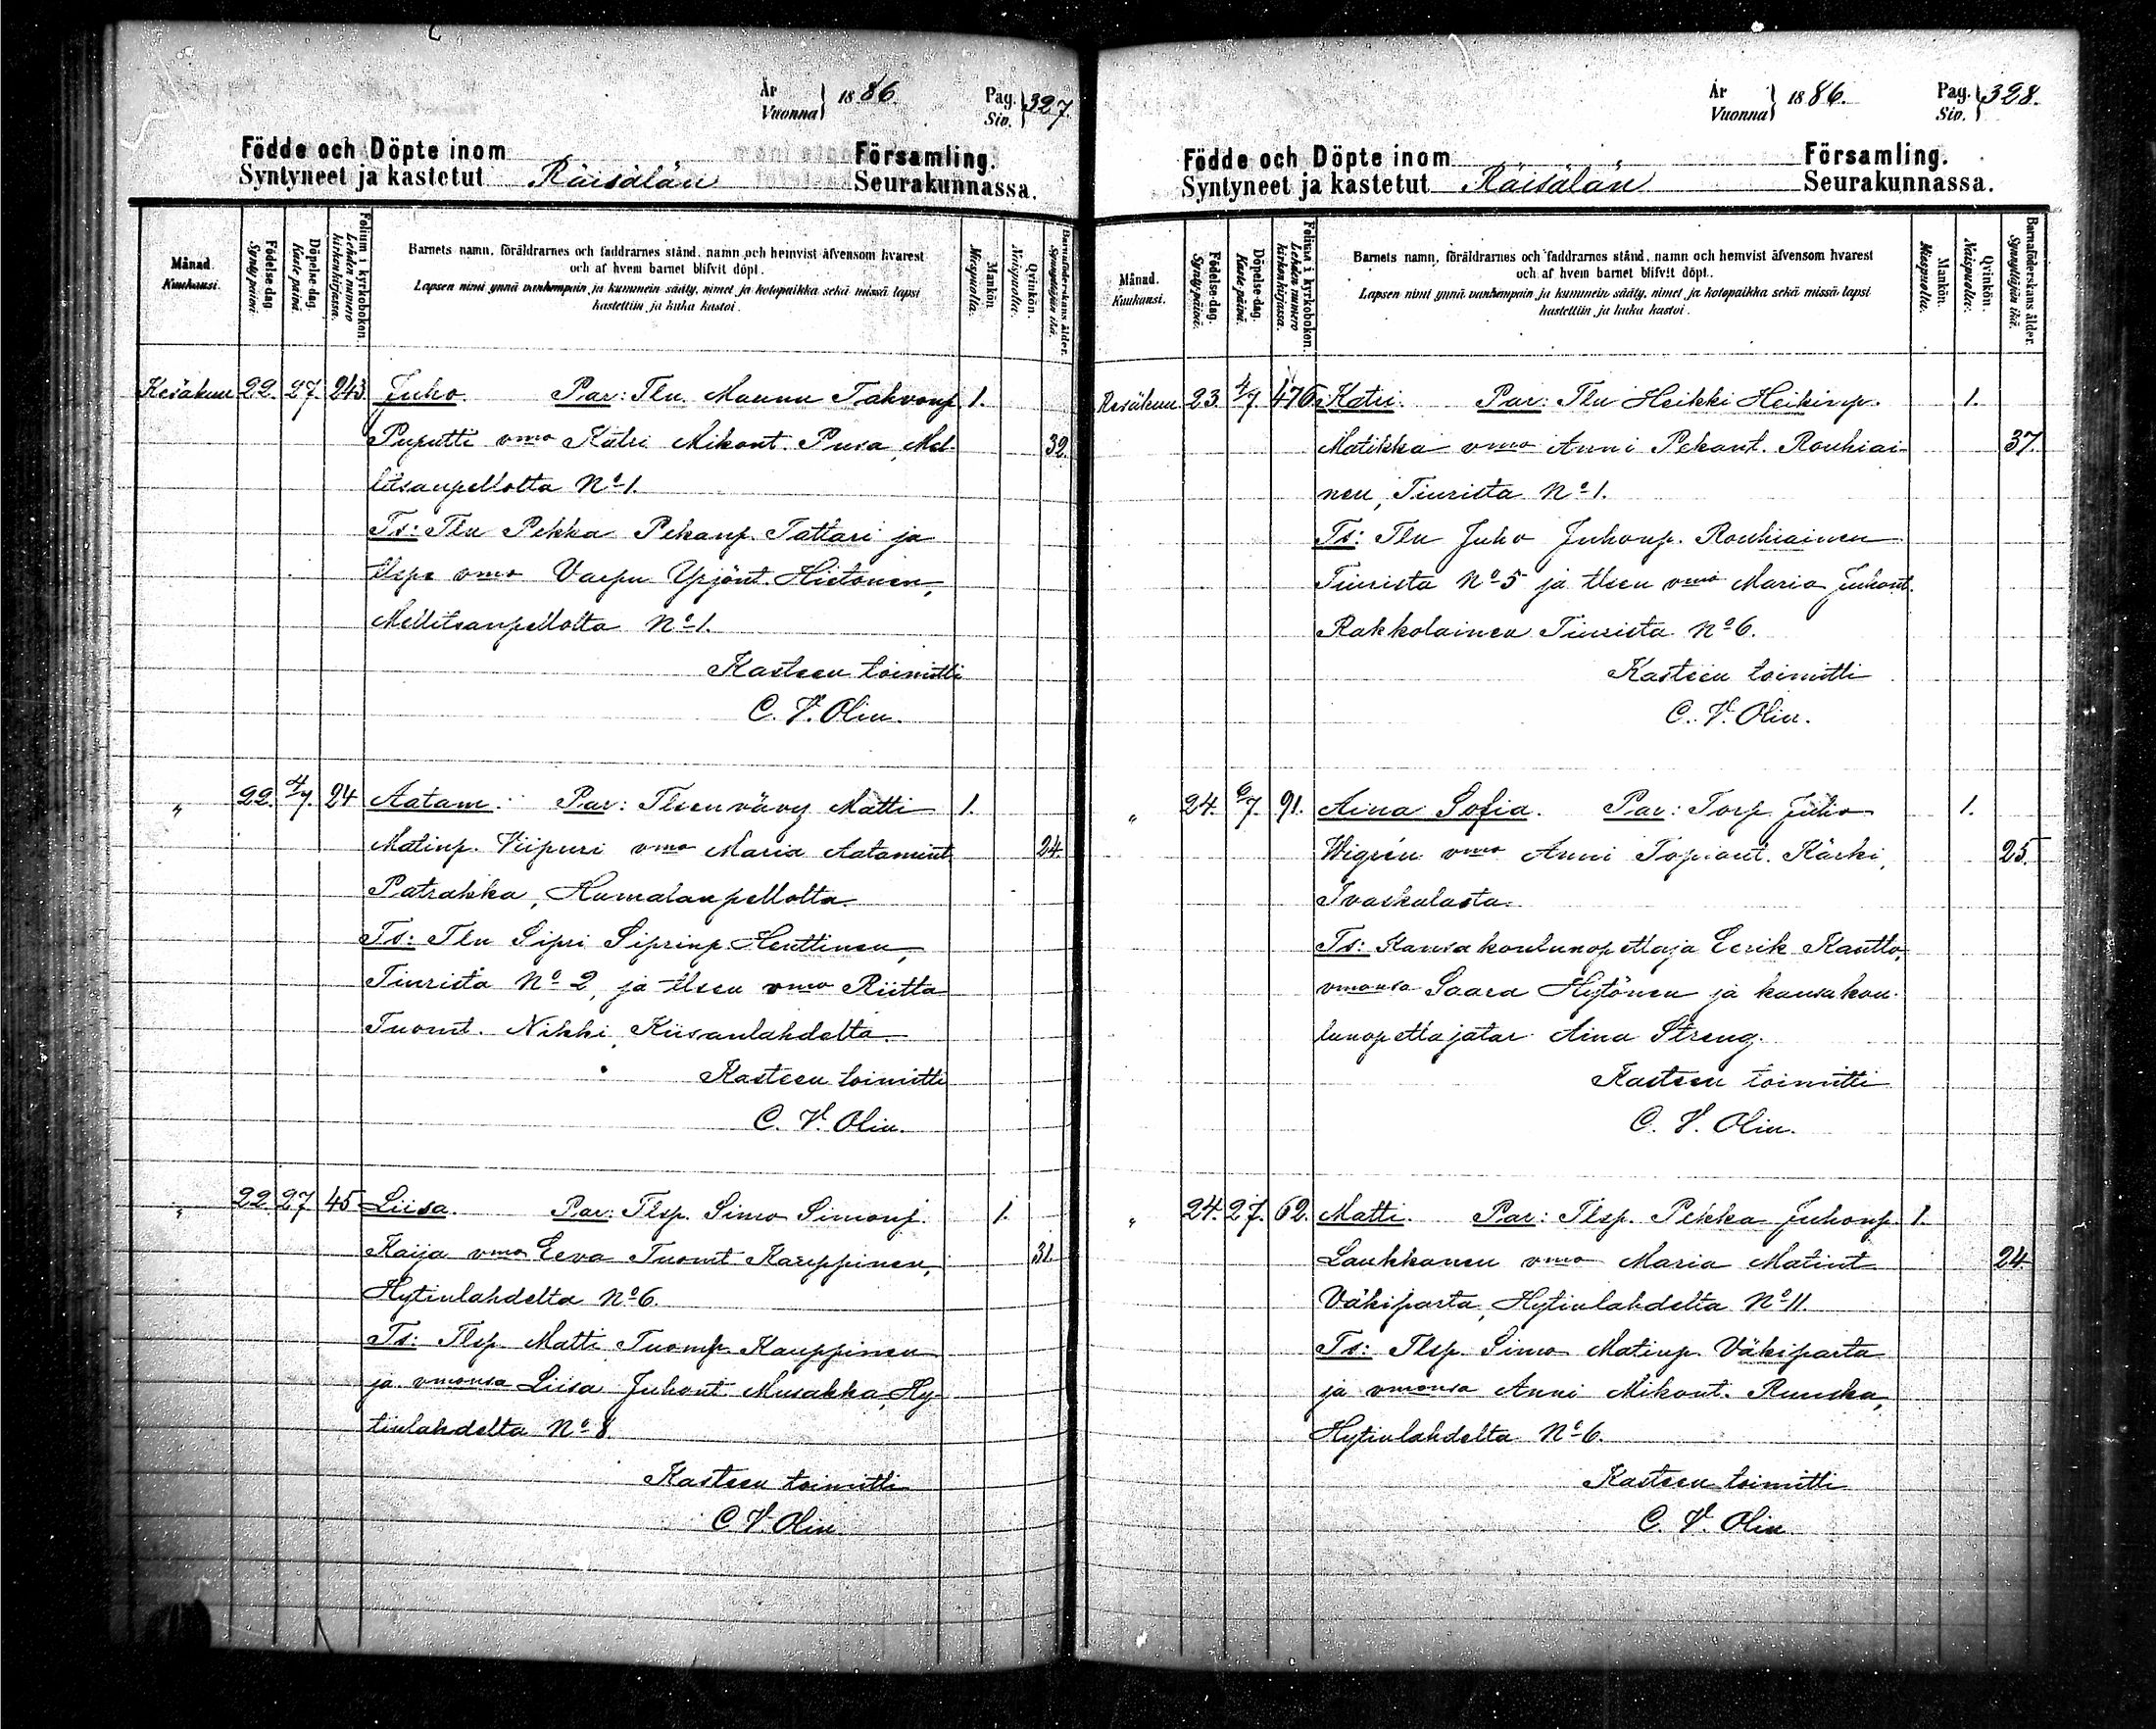 År
Vuonna } 1886.
Pag.
Siv. } 327.
Födde och Döpte inom Församling.
Syntyneet ja kastetut Räisälän Seurakunnassa.
Månad.
Kuukausi.
Födelse-dag.
Syntypäivä.
Döpelse-dag.
Kastepäivä.
Folium i kyrkobokon.
Lehden numero
kirkonkirjassa.
Barnets namn, föräldrarnes och faddrarnes stånd, namn och hemvist äfvensom hvarest
och af hvem barnet blifvit döpt.
Lapsen nimi ynnä vanhempain ja kummein sääty, nimet ja kotopaikka sekä missä lapsi
kastettiin ja kuka kastoi.
Mankön.
Miespuolta.
Qvinkön.
Naispuolta.
Barnaföderskans ålder.
Synnyttäjän ikä.
Kesäkuu 22. 27. 243 Juho. Par: Tln Maunu Tahvonp. 1.
Puputti vmo Katri Mikont. Pusa, Mel- 32.
litsanpellolta No 1.
Ts: Tln Pekka Pekanp. Tattari ja
tlspn vmo Varpu Yrjönt. Hietonen,
Mellitsanpellolta No 1.
Kasteen toimitti
C. V. Olin.
„ 22. 4/7. 24 Aatam. Par: Tlsen vävy Matti 1.
Matinp. Viipuri vmo Maria Aatamint. 24.
Patrakka, Humalanpellolta.
Ts: Tln Sipri Siprinp. Henttinen,
Tiurista No 2, ja tlsen vmo Riitta
Tuomt. Nikki, Kiisanlahdelta.
Kasteen toimitti
C. V. Olin.
„ 22. 27. 45 Liisa. Par: Tlsp. Simo Simonp. 1.
Kaija vmo Eeva Tuomt. Kauppinen, 31
Hytinlahdelta No 6.
Ts: Tlsp. Matti Tuomp. Kauppinen
ja vmonsa Liisa Juhont. Musakka, Hy-
tinlahdelta No 8.
Kasteen toimitti
C. V. Olin
År
Vuonna } 1886.
Pag.
Siv. } 328.
Födde och Döpte inom Församling.
Syntyneet ja kastetut Räisälän Seurakunnassa.
Månad.
Kuukausi.
Födelse-dag.
Syntypäivä.
Döpelse-dag.
Kastepäivä.
Folium i kyrkobokon.
Lehden numero
kirkonkirjassa.
Barnets namn, föräldrarnes och faddrarnes stånd, namn och hemvist äfvensom hvarest
och af hvem barnet blifvit döpt.
Lapsen nimi ynnä vanhempain ja kummein sääty, nimet ja kotopaikka sekä missä lapsi
kastettiin ja kuka kastoi.
Mankön.
Miespuolta.
Qvinkön.
Naispuolta.
Barnaföderskans ålder.
Synnyttäjän ikä.
Kesäkuu 23. 4/7 476 Katri. Par: Tln Heikki Heikinp. 1.
Matikka vmo Anni Pekant. Rouhiai- 37.
nen, Tiurista No 1.
Ts: Tln Juho Juhonp. Rouhiainen
Tiurista No 5 ja tlsen vmo Maria Juhont.
Rakkolainen Tiurista No 6.
Kasteen toimitti
C. V. Olin.
„ 24. 6/7. 91. Aina Sofia. Par: Torp. Juho 1.
Wigrén vmo Anni Topiant. Kärki, 25.
Ivaskalasta.
Ts: Kansakoulunopettaja Eerik Kautto,
vmonsa Saara Hytönen ja kansakou-
lunopettajatar Aina Streng.
Kasteen toimitti
C. V. Olin.
„ 24. 27. 62. Matti. Par: Tlsp. Pekka Juhonp. 1.
Laukkanen vmo Maria Matint. 24
Väkiparta, Hytinlahdelta No 11.
Ts: Tlsp. Simo Matinp. Väkiparta
ja vmonsa Anni Mikont. Ruuska,
Hytinlahdelta No 6.
Kasteen toimitti
C. V. Olin